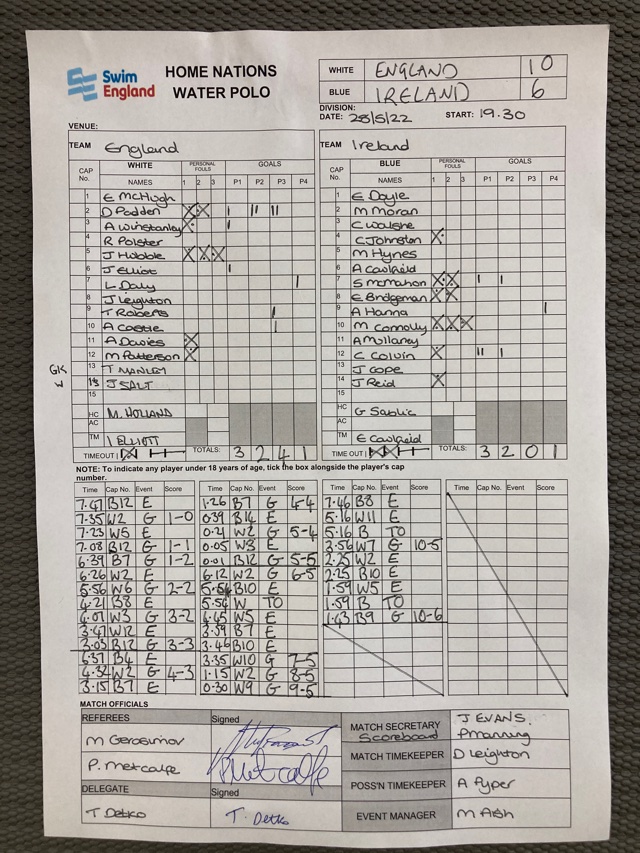 Swim England
HOME NATIONS
WATER POLO
WHITE ENGLAND 10
BLUE IRELAND 6
DIVISION:
DATE: 28/5/22 START: 19.30
VENUE:
TEAM England
CAP No. WHITE PERSONAL FOULS GOALS
NAMES 1 2 3 P1 P2 P3 P4
1 E McHugh
2 D Padden X X I II II
3 A Winstanley X I
4 R Polster
5 J Hubble X X X
6 J Elliot I
7 L Davy I
8 J Leighton
9 T Roberts I
10 A Castle I
11 A Davies X
12 M Patterson X
13 T MANLEY
GK W 15 J SALT
15
HC M. HOLLAND
AC
TM I ELLIOTT
TIME OUT TOTALS: 3 2 4 1
TEAM Ireland
CAP No. BLUE PERSONAL FOULS GOALS
NAMES 1 2 3 P1 P2 P3 P4
1 E Doyle
2 M Moran
3 C Walshe
4 C Johnston X
5 M Hynes
6 A Caulfield
7 S McMahon X X I I
8 E Bridgeman X X
9 A Hanna I
10 M Connolly X X X
11 A Mullaney
12 C Colvin X II I
13 J Cope
14 J Reid X
15
HC G Sablic
AC
TM E Caulfield
TIME OUT TOTALS: 3 2 0 1
NOTE: To indicate any player under 18 years of age, tick the box alongside the player's cap
number.
Time Cap No. Event Score
7.47 B12 E
7.35 W2 G 1-0
7.23 W5 E
7.08 B12 G 1-1
6.39 B7 G 1-2
6.26 W2 E
5.56 W6 G 2-2
4.21 B8 E
4.01 W3 G 3-2
3.47 W12 E
3.03 B12 G 3-3
6.37 B4 E
4.32 W2 G 4-3
3.15 B7 E
Time Cap No. Event Score
1.26 B7 G 4-4
0.39 B14 E
0.21 W2 G 5-4
0.05 W3 E
0.01 B12 G 5-5
6.12 W2 G 6-5
5.54 B10 E
5.54 W TO
4.45 W5 E
3.59 B7 E
3.46 B10 E
3.35 W10 G 7-5
1.15 W2 G 8-5
0.30 W9 G 9-5
Time Cap No. Event Score
7.46 B8 E
5.16 W11 E
5.16 B TO
3.56 W7 G 10-5
2.25 W2 E
2.25 B10 E
1.59 W5 E
1.59 B TO
1.43 B9 G 10-6
Time Cap No. Event Score
MATCH OFFICIALS
REFEREES Signed
M Gerasimov
P. Metcalfe P Metcalfe
DELEGATE Signed
T Detko T. Detko
MATCH SECRETARY J EVANS.
Scoreboard P Manning
MATCH TIMEKEEPER D Leighton
POSS'N TIMEKEEPER A Pyper
EVENT MANAGER M Ash